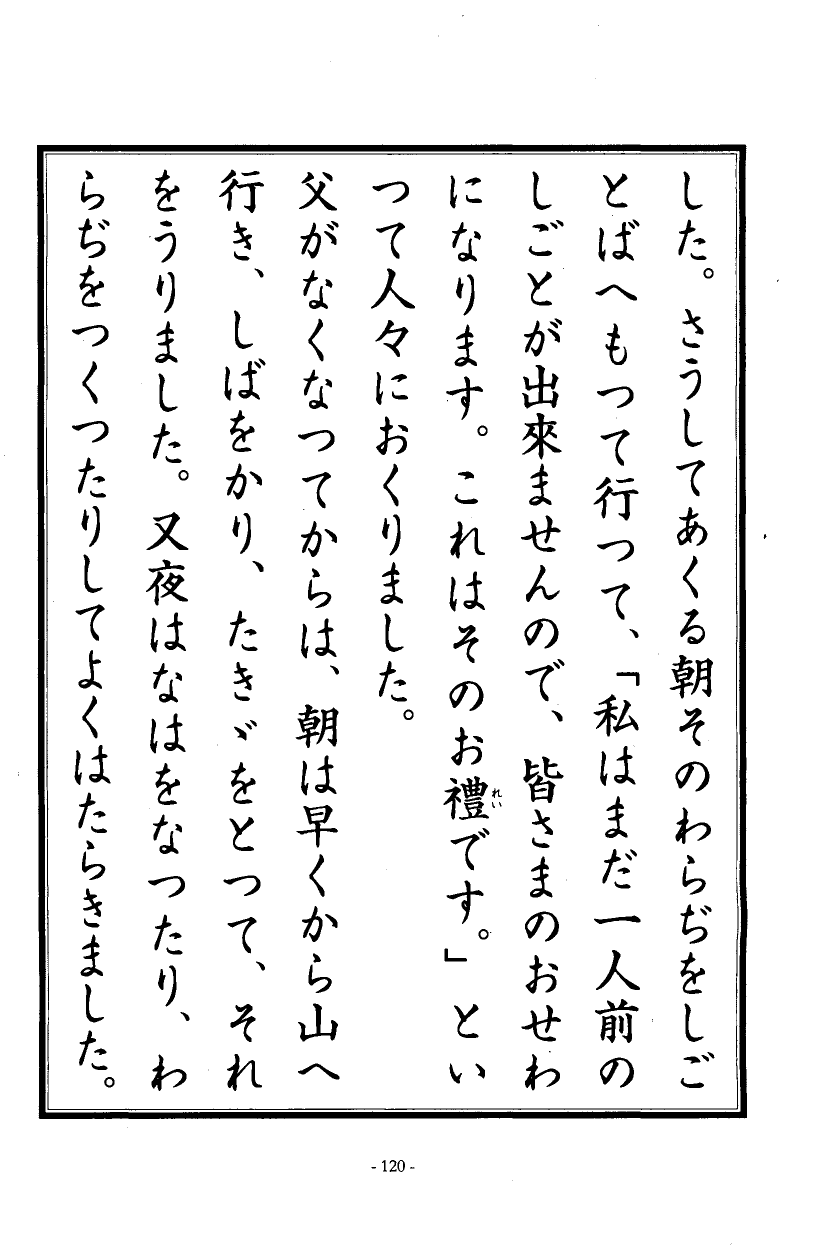 した。さうしてあくる朝そのわらぢをしご
とばへもつて行つて、「私はまだ一人前の
しごとが出來ませんので、皆さまのおせわ
になります。これはそのお禮です。」とい
れい
つて人々におくりました。
父がなくなつてからは、朝は早くから山へ
行き、しばをかり、たきゞをとつて、それ
をうりました。又夜はなはをなつたり、わ
らぢをつくつたりしてよくはたらきました。
- 120 -